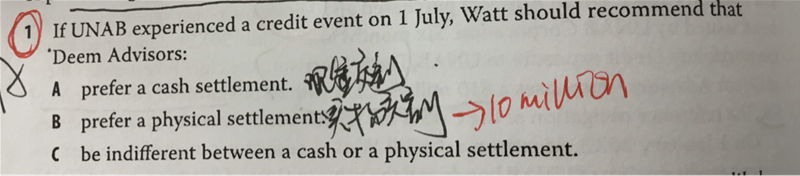 1 If UNAB experienced a credit event on 1 July, Watt should recommend that
Deem Advisors:
A prefer a cash settlement. 现金交割
B prefer a physical settlement: 实物交割 →10 million
C be indifferent between a cash or a physical settlement.